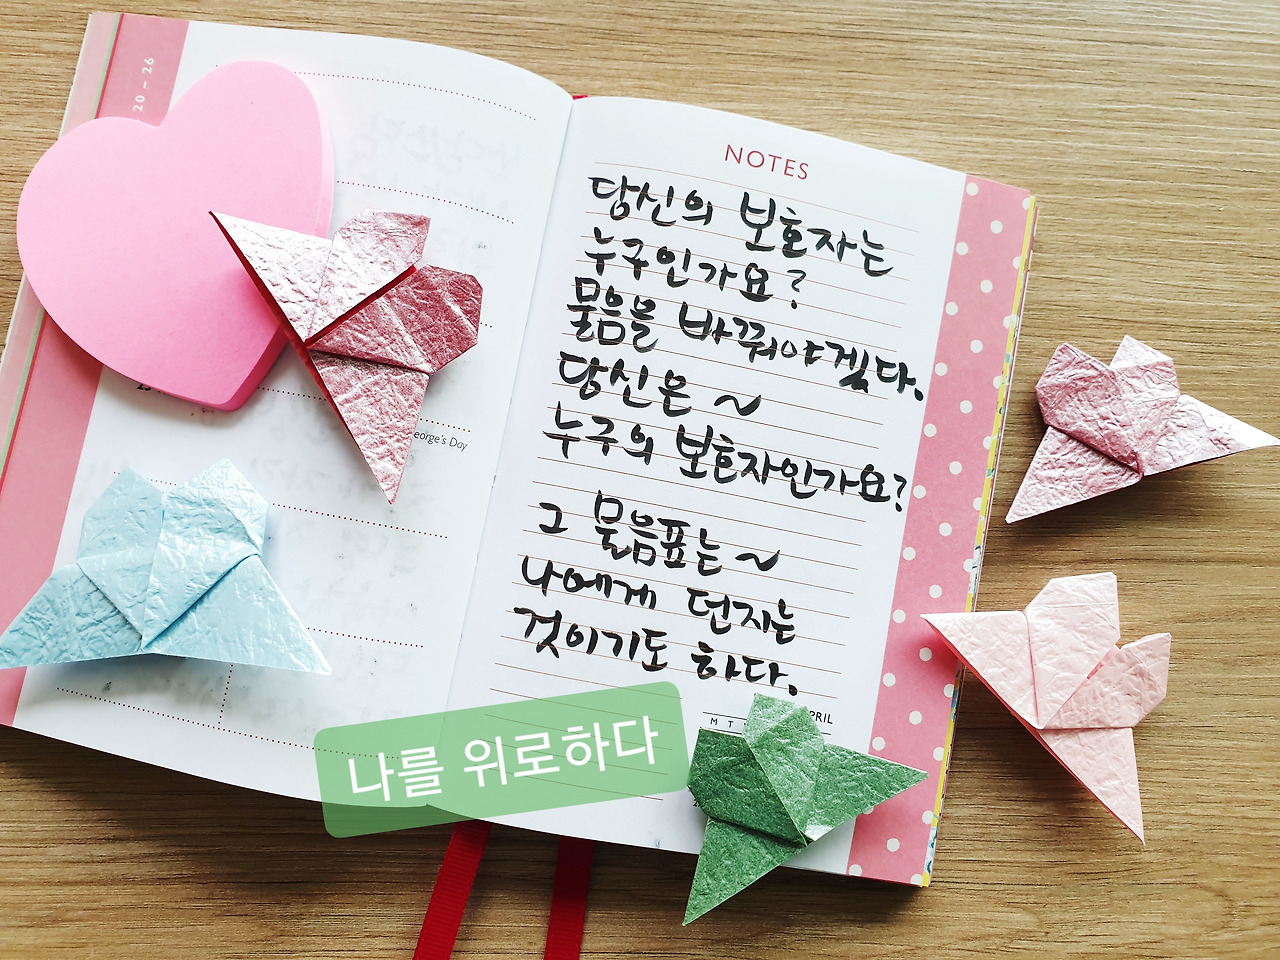 20 – 26
NOTES
당신의 보호자는
누구인가요?
물음을 바꿔야겠다.
당신은 ~
누구의 보호자인가요?
그 물음표는 ~
나에게 던지는
것이기도 하다.
eorge's Day
M T
PRIL
나를 위로하다